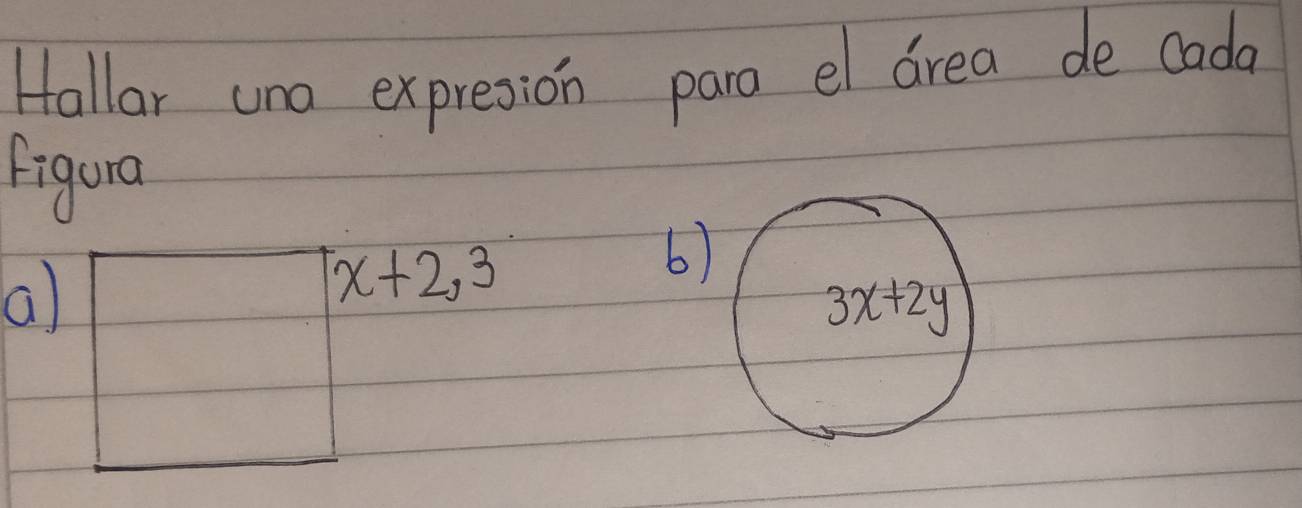 Hallar una expresión para el área de cada
Figura
a) x+2,3 b) 3x+2y